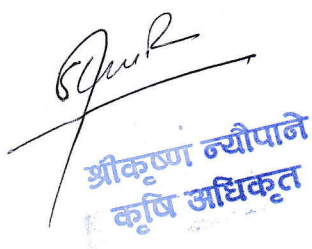 श्रीकृष्ण न्यौपाने
कृषि अधिकृत